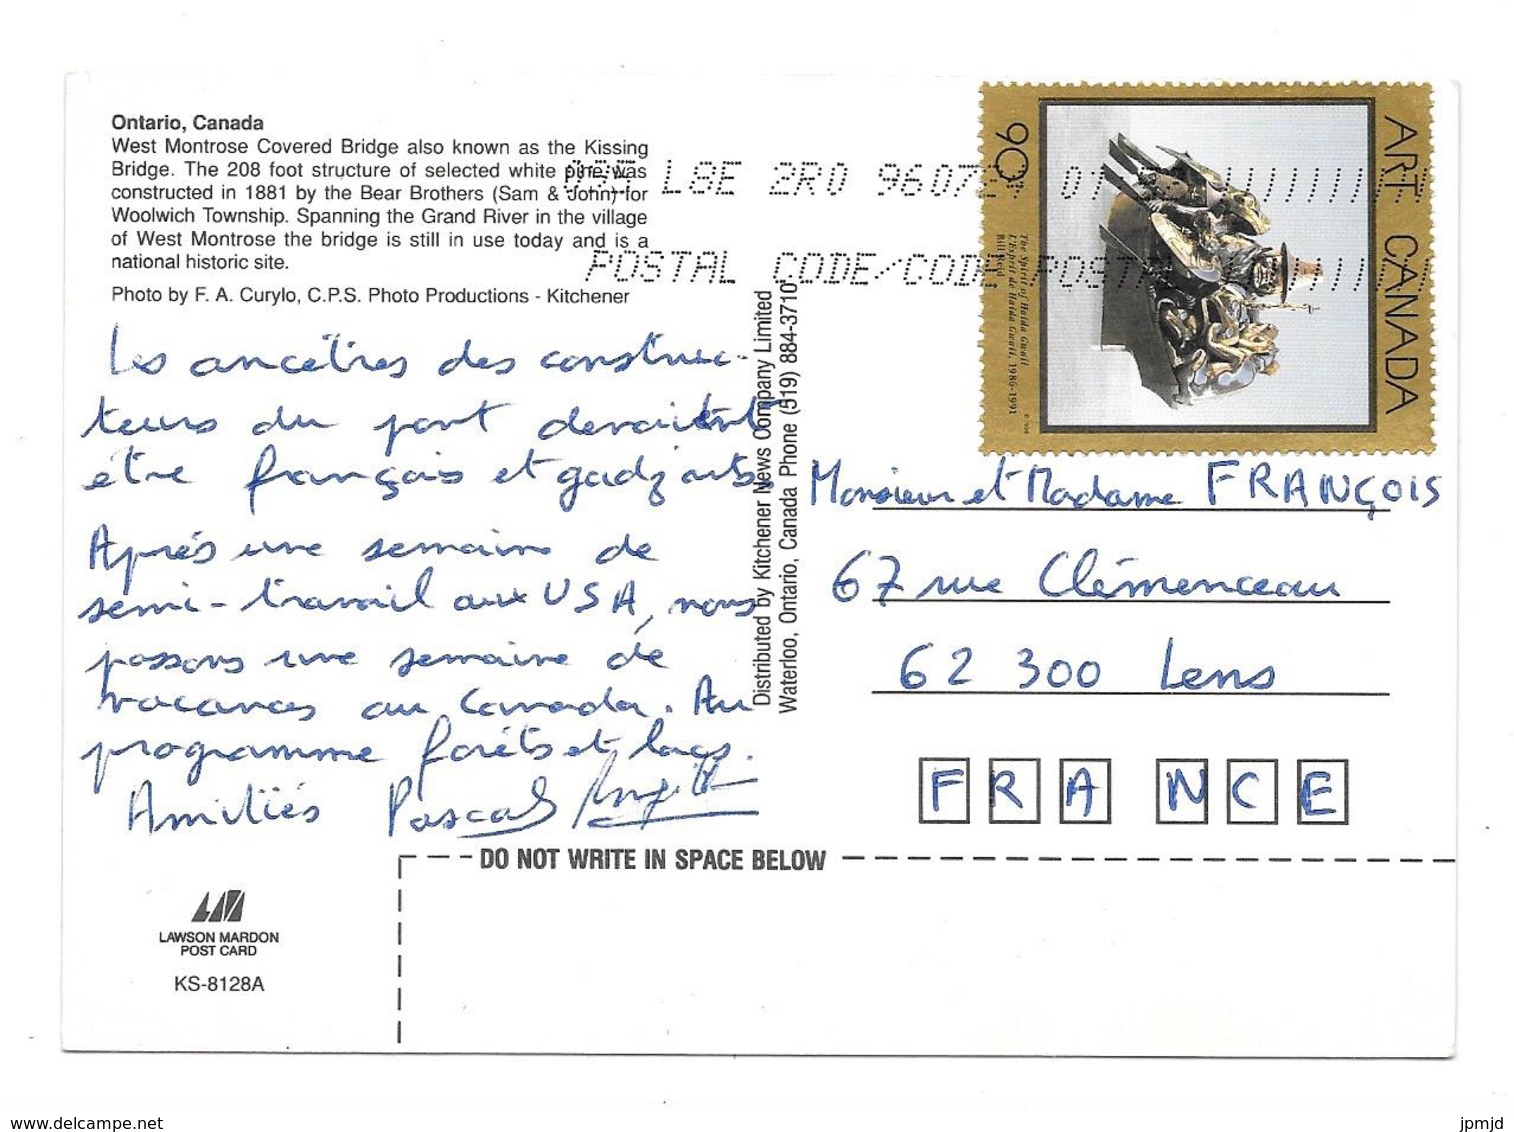 Ontario, Canada
West Montrose Covered Bridge also known as the Kissing
Bridge. The 208 foot structure of selected white pine, was
constructed in 1881 by the Bear Brothers (Sam & John) for
Woolwich Township. Spanning the Grand River in the village
of West Montrose the bridge is still in use today and is a
national historic site.
Photo by F. A. Curylo, C.P.S. Photo Productions - Kitchener
Les ancêtres des construc-
teurs du pont devaient
être français et gadz arts
Après une semaine de
semi-travail aux USA, nous
passons une semaine de
vacances au Canada. Au
programme forêts et lacs.
Amitiés Pascal
LAWSON MARDON
POST CARD
KS-8128A
Distributed by Kitchener News Company Limited
Waterloo, Ontario, Canada Phone (519) 884-3710
L8E 2R0 9607
POSTAL CODE/CODE POSTAL
ART CANADA
90
The Spirit of Haida Gwaii
L'Esprit de Haida Gwaii, 1986-1991
Bill Reid
Monsieur et Madame FRANÇOIS
67 rue Clémenceau
62 300 Lens
FRANCE
DO NOT WRITE IN SPACE BELOW
www.delcampe.net
jpmjd